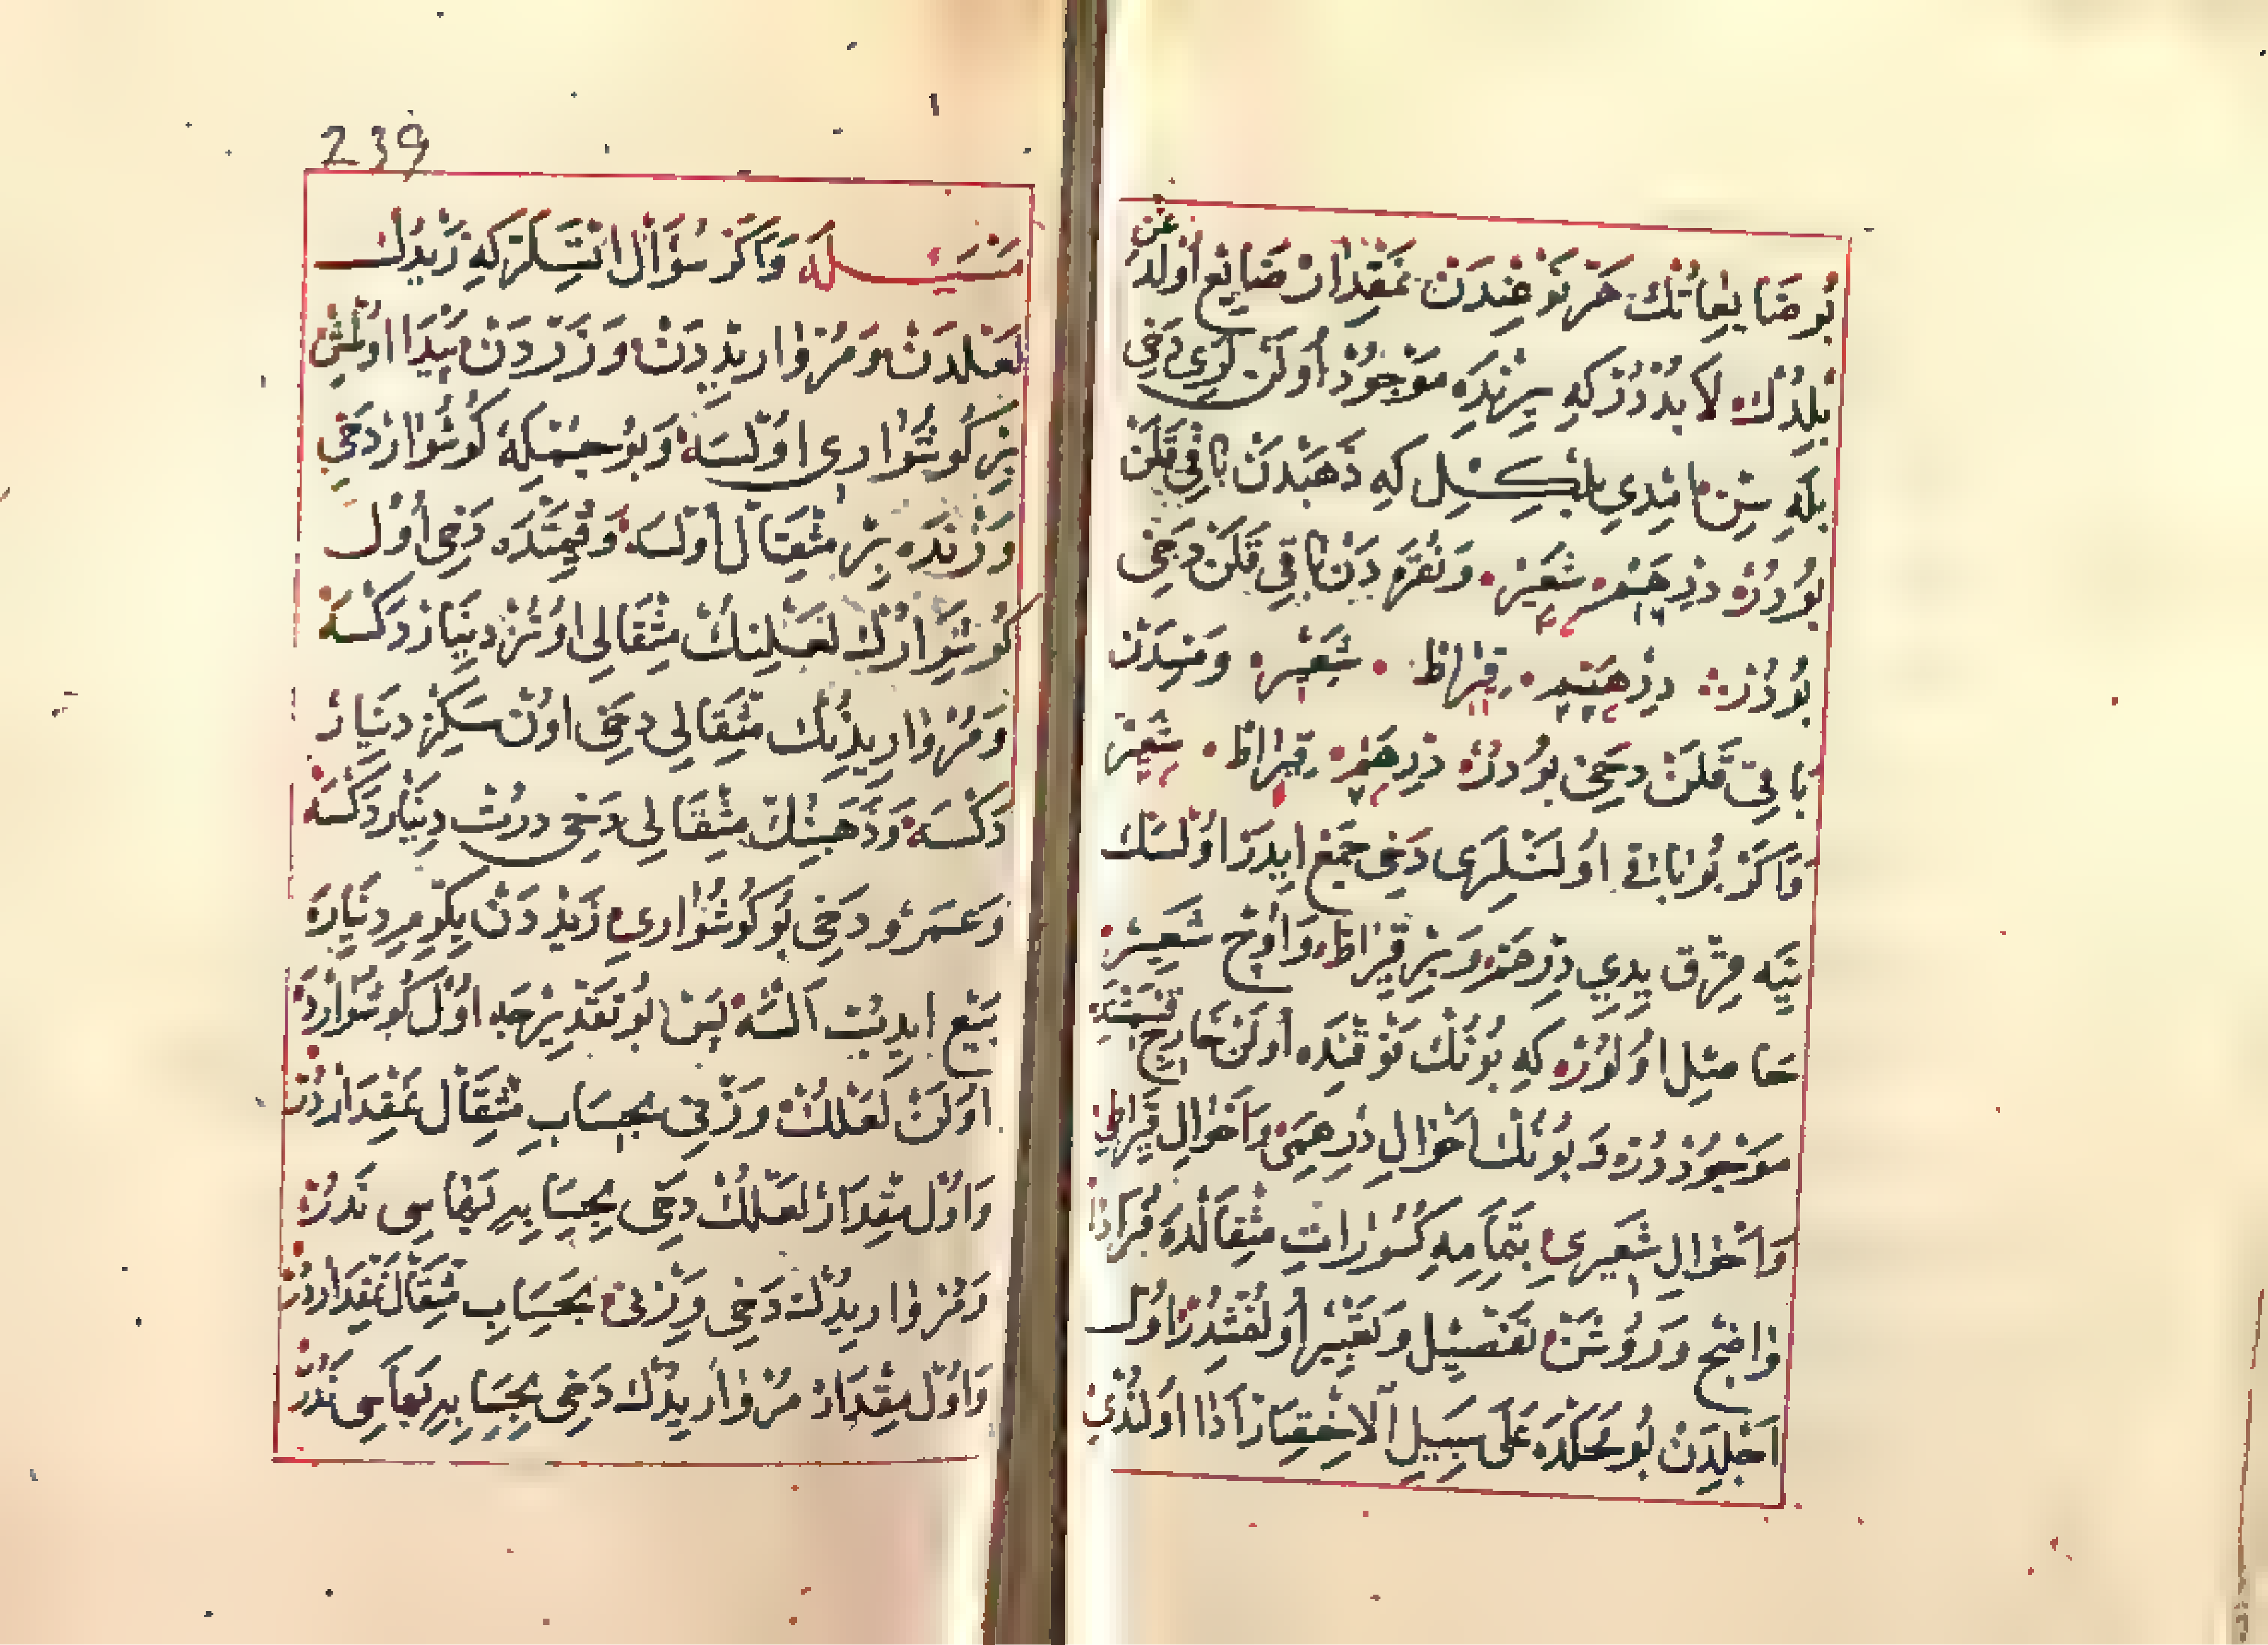 بُو ضَايِعَاتُكْ هَرْ نَوْعِنْدَنْ نَمِقْدَارْ ضَايِعْ اُولْدُغِنْ
بِلِدُكْ لَابُدْدُرْ كِهِ يِرِنْدَه مَوْجُودْ اُولَنْ لَرِي دَخِي
بِلَهِ سِنْ اِمْدِي بِلْكِلْ كِهِ ذَهَبْدَنْ بَاقِي قَلَنْ
بُودُرْ دِرْهَمْ شَعِيرْ وَنُقْرَه دَنْ بَاقِي قَلَنْ دَخِي
بُودُرْ دِرْهَمْ قِيرَاطْ شَعِيرْ وَمِسْدَنْ
بَاقِي قَلَنْ دَخِي بُودُرْ دِرْهَمْ قِيرَاطْ شَعِيرْ
وَاكَرْ بُو بَاقِي اُولَنْلَرِي دَخِي جَمِعْ اِيدَرْ اُولْسَكْ
يِنَه قِرْق يِدِي دِرْهَمْ وَبِرْ قِيرَاطْ وَاُوچْ شَعِيرْ
حَاصِل اُولُورْ كِهِ بُونُكْ فَوْقِنْدَه اُولَنْ خَارِجْ قِسْمَتْدَه
مَوْجُودْدُرْ وَبُونُكْ اَحْوَالِ دِرْهَمِي وَاَحْوَالِ قِيرَاطِي
وَاَحْوَالِ شَعِيرِي بِتَمَامِهِ كُسُورَاتِ مِثْقَالْدَه مُرَادًا
وَاضِحْ وَرُوشَنْ تَفْصِيل وَتَعْبِير اُولُنْمِشْدُرْ اُولْ
اَجْلِدَنْ بُو مَحَلْدَه عَلَى سَبِيلِ الْاِخْتِصَارْ اَدَا اُولُنْدِي
239
مَسْئَلَه وَاكَرْ سُؤَالْ اِتْسَلَرْ كِهِ زَيْدُكْ
لَعْلْدَنْ وَمُرْوَارِيدْدَنْ وَزَرْدَنْ پَيْدَا اُولْمِشْ
بِرْ كُوشْوَارِي اُولْسَه وَبُو جُمْلَه كُوشْوَارْ دَخِي
وَزْنِدَه بِرْ مِثْقَالْ اُولْسَه وَقِيمَتْدَه دَخِي اُولْ
كُوشْوَارُكْ لَعْلِنُكْ مِثْقَالِي اُوتُزْ دِينَارْ دَكْسَه
وَمُرْوَارِيدِنُكْ مِثْقَالِي دَخِي اُونْ سَكِزْ دِينَارْ
دَكْسَه وَذَهَبِنُكْ مِثْقَالِي دَخِي دُرْتْ دِينَارْ دَكْسَه
وَعَمْرُو دَخِي بُو كُوشْوَارِي زَيْدْدَنْ يِكِرْمِي دِينَارَه
بَيْع اِيدِبْ اَلْسَه پَسْ بُو تَقْدِيرْجَه اُولْ كُوشْوَارْدَه
اُولَنْ لَعْلُكْ وَزْنِي بِحِسَابِ مِثْقَالْ نَمِقْدَارْدُرْ
وَاُولْ مِقْدَارْ لَعْلُكْ دَخِي بِحِسَابِهِ بَهَاسِي نَدُرْ
وَمُرْوَارِيدُكْ دَخِي وَزْنِي بِحِسَابِ مِثْقَالْ نَمِقْدَارْدُرْ
وَاُولْ مِقْدَارْ مُرْوَارِيدُكْ دَخِي بِحِسَابِهِ بَهَاسِي نَدُرْ